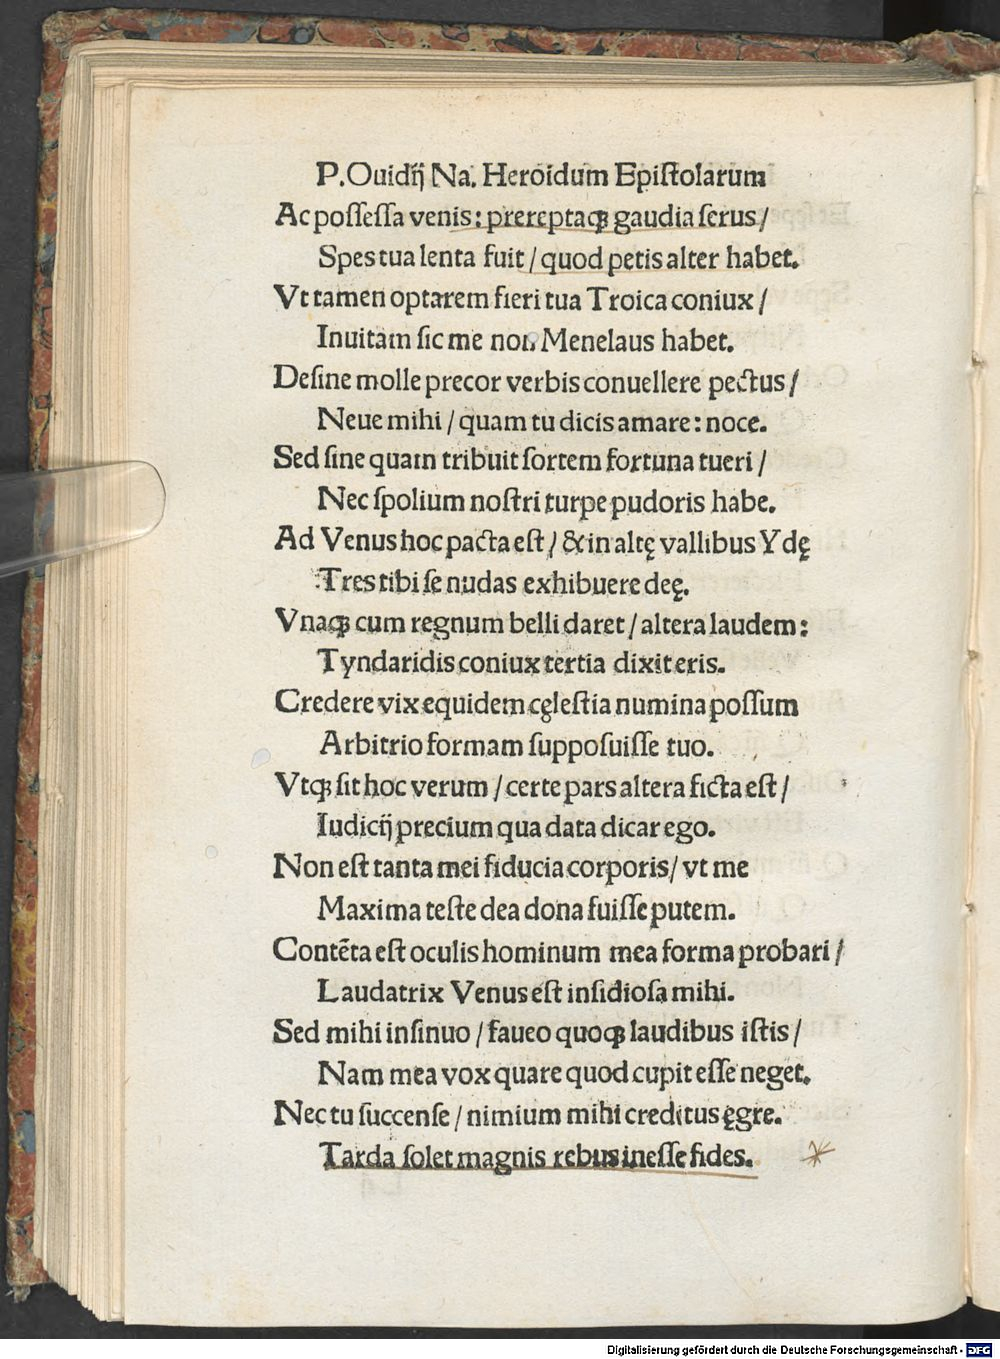 P.Ouidij Na. Heroidum Epiſtolarum
Ac poſſeſſa venis: prereptaqꝫ gaudia ſerus /
Spes tua lenta fuit / quod petis alter habet.
Vt tamen optarem fieri tua Troica coniux /
Inuitam ſic me non Menelaus habet.
Deſine molle precor verbis conuellere pectus /
Neue mihi / quam tu dicis amare: noce.
Sed ſine quam tribuit ſortem fortuna tueri /
Nec ſpolium noſtri turpe pudoris habe.
Ad Venus hoc pacta eſt / & in altę vallibus Ydę
Tres tibi ſe nudas exhibuere deę.
Vnaqꝫ cum regnum belli daret / altera laudem:
Tyndaridis coniux tertia dixit eris.
Credere vix equidem cęleſtia numina poſſum
Arbitrio formam ſuppoſuiſſe tuo.
Vtqꝫ ſit hoc verum / certe pars altera ficta eſt /
Iudicij precium qua data dicar ego.
Non eſt tanta mei fiducia corporis / vt me
Maxima teſte dea dona fuiſſe putem.
Contēta eſt oculis hominum mea forma probari /
Laudatrix Venus eſt inſidioſa mihi.
Sed mihi inſinuo / faueo quoqꝫ laudibus iſtis /
Nam mea vox quare quod cupit eſſe neget.
Nec tu ſuccenſe / nimium mihi creditus ęgre.
Tarda ſolet magnis rebus ineſſe fides.
Digitalisierung gefördert durch die Deutsche Forschungsgemeinschaft - DFG